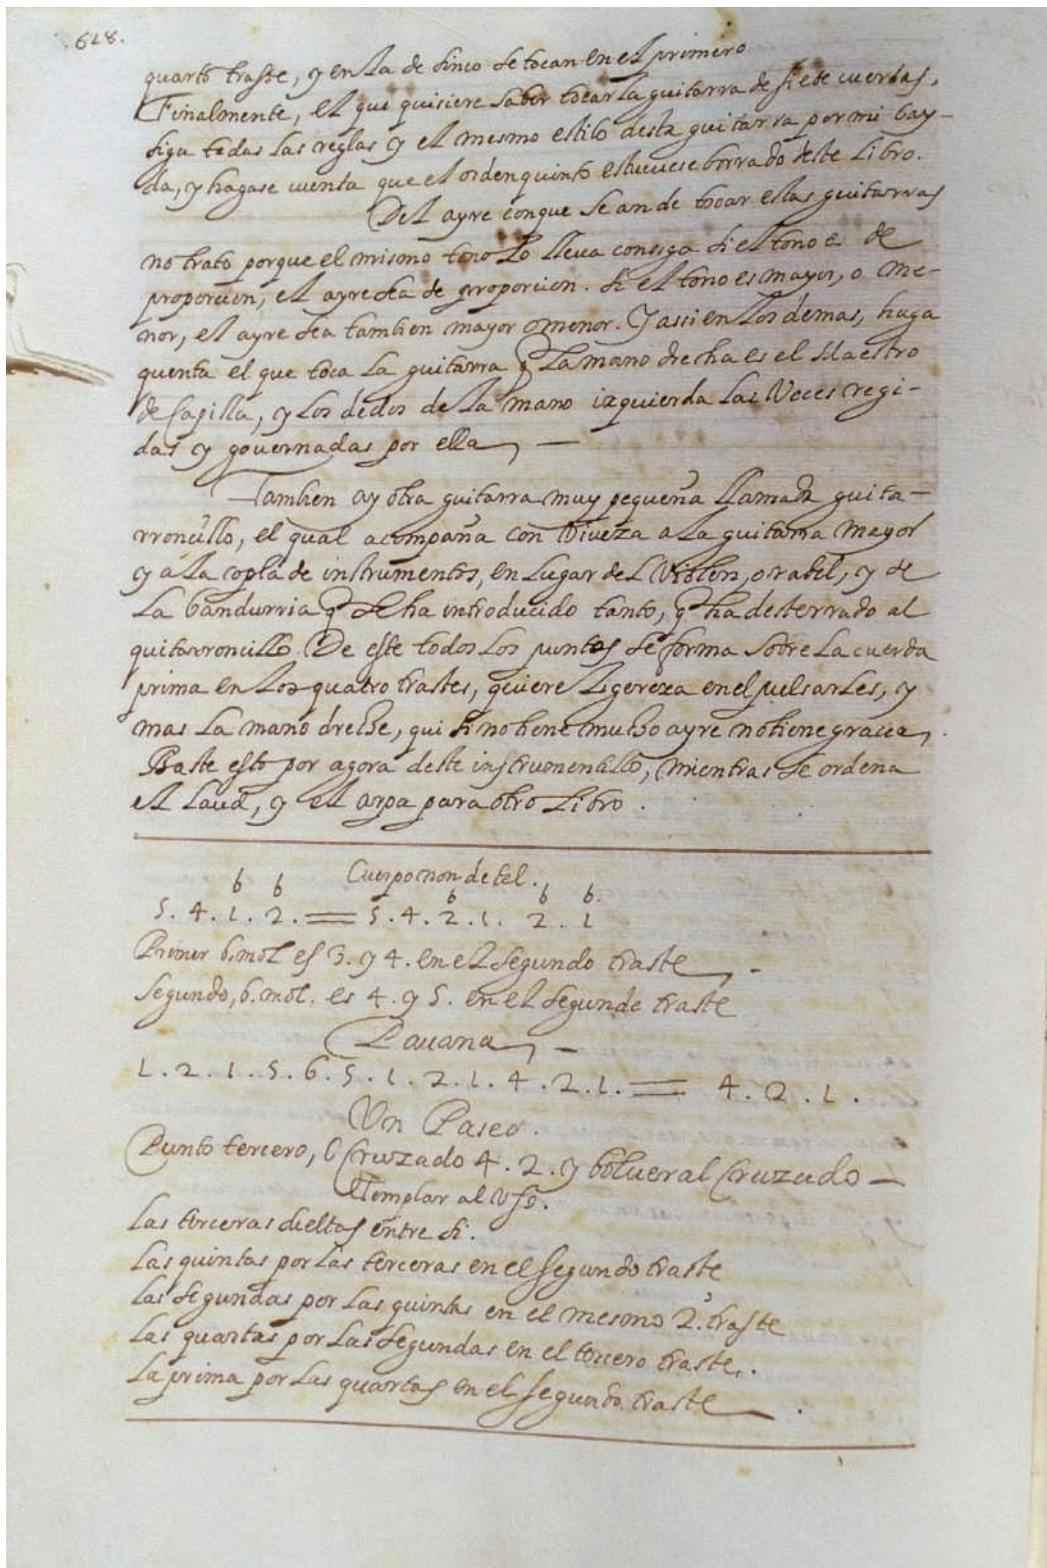 .628.
quarto traste, y en la de sinco se tocan en el primero
Finalmente, el que quisiere saber tocar la guitarra de siete cuerdas,
siga todas las reglas y el mesmo estilo desta guitarra por mi bay-
da, y hagase cuenta que el orden quinto estuuiese borrado deste Libro.
Del ayre conque se an de tocar estas guitarras
no trato porque el mismo tono Lo lleua consigo si el tono es de
proporcion, el ayre sea de proporcion. si el tono es mayor, o me-
nor, el ayre sea tambien mayor o menor. Y assi en Los demas, haga
quenta el que toca La guitarra q La mano drecha es el Maestro
de Capilla, y Los dedos de La mano izquierda Las Voces regi-
das y gouernadas por ella, —
Tambien ay otra guitarra muy pequeña Llamada guita-
rroncillo, el qual acompaña con Viueza a La guitarra mayor
y a La copla de instrumentos, en Lugar del Violin, o rabel, y de
La bandurria q se ha introducido tanto, q ha desterrado al
guitarroncillo De este todos Los puntos se forma sobre La cuerda
prima en Los quatro trastes, quiere Ligereza en el pulsarles, y
mas La mano dreche, qui si no tiene mucho ayre no tiene gracia,
Baste esto por agora deste instrumentillo, mientras se ordena
el Laud, y el arpa para otro Libro.
Cuerpo non de tal.
b b b b b.
5. 4. 1. 2. = 5. 4. 2. 1. 2. 1
Primer b.mol es 3. y 4. en el Segundo traste, -
Segundo, b.mol. es 4. y 5. en el segundo traste
Pauana, -
1. 2. 1. 5. 6. 5. 1. 2. 1. 4. 2. 1. = 4. 2. 1.
Un Paseo.
Punto tercero, o Cruzado 4. 2. y boluer al Cruzado —
Templar al Uso.
Las terceras sueltas entre si.
Las quintas por Las terceras en el segundo traste
Las segundas por Las quintas en el mesmo 2.º traste
Las quartas por Las segundas en el tercero traste,.
La prima por Las quartas en el segundo traste.